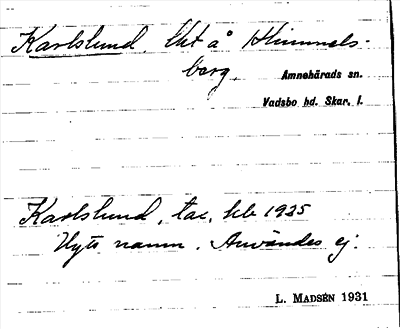 Karlslund. Uts å Himmels-
berg.
Amnehärads sn.
Vadsbo hd. Skar. l.
Karlslund, tax. lb 1925
Nytt namn. Användes ej.
L. MADSÉN 1931